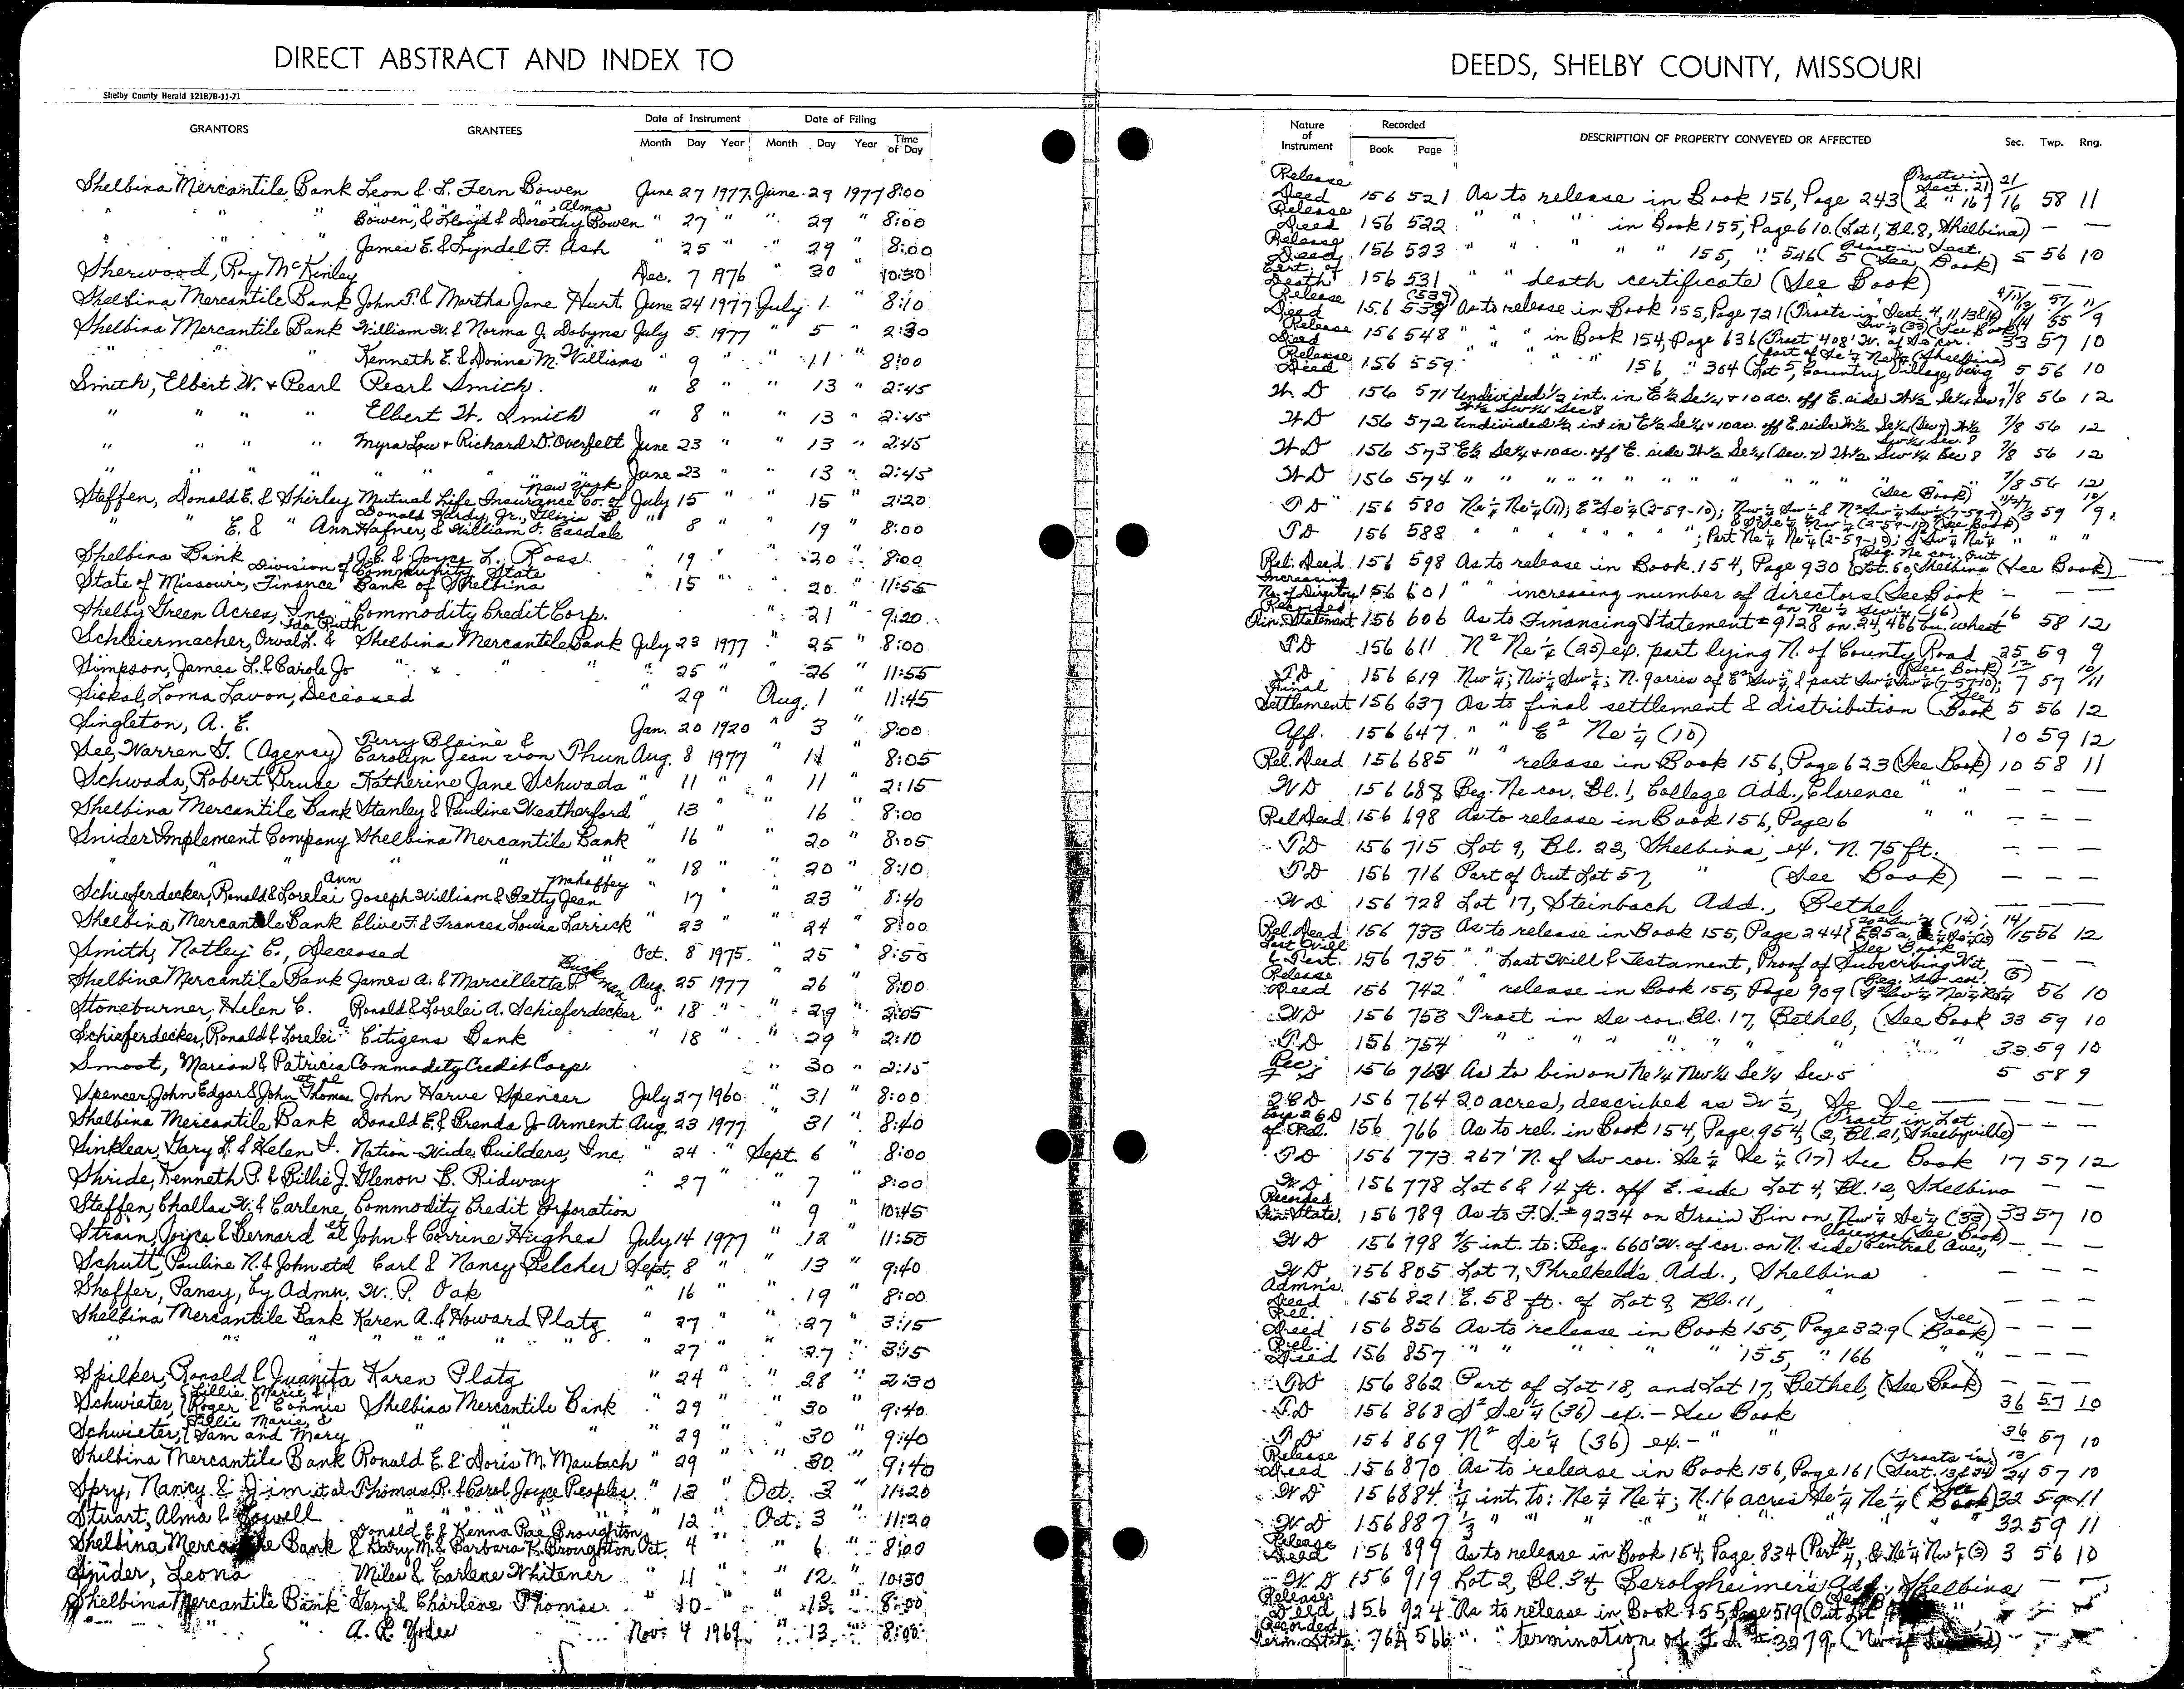 DIRECT ABSTRACT AND INDEX TO
Shelby County Herald 12187B-11-71
GRANTORS GRANTEES Date of Instrument Month Day Year Date of Filing Month Day Year Time of Day
Shelbina Mercantile Bank Leon & L. Fern Bowen June 27 1977 June 29 1977 8:00
" " " " , Alma
Bowen, & Lloyd & Dorothy Bowen " 27 " " 29 " 8:00
" " " James E. & Lyndel F. Ash " 25 " " 29 " 8:00
Sherwood, Roy McKinley Dec. 7 1976 " 30 10:30
Shelbina Mercantile Bank John T. & Martha Jane Hurt June 24 1977 July 1 " 8:10
Shelbina Mercantile Bank William W. & Norma J. Dobyns July 5 1977 " 5 " 2:30
" " " Kenneth E. & Donna M. Williams " 9 " " 11 " 8:00
Smith, Elbert W. & Pearl Pearl Smith " 8 " " 13 " 2:45
" " " " Elbert W. Smith " 8 " 13 " 2:45
" " " " Myra Lou & Richard D. Overfelt June 23 " " 13 " 2:45
" " " " " " " " June 23 " " 13 " 2:45
Steffen, Donald E. & Shirley Mutual Life Insurance Co. of New York July 15 " " 15 " 2:20
Donald Hardy, Jr.,
" " E. & " Ann Hafner, & William J. Easdale " 8 " " 19 " 8:00
Shelbina Bank J.C. & Joyce L. Ross " 19 " " 20 " 8:00
State of Missouri, Division of Finance Community State Bank of Shelbina " 15 " " 20 " 11:55
Shelby Green Acres, Inc. Commodity Credit Corp. " 21 " 9:20
Schliermacher, Orval L. & Ida Ruth Shelbina Mercantile Bank July 23 1977 " 25 " 8:00
Simpson, James L. & Carole Jo " " " " 25 " " 26 " 11:55
Sickal, Loma Lavon, Deceased " 29 " Aug. 1 " 11:45
Singleton, A. E. Jan. 20 1920 " 3 " 8:00
See, Warren G. (Agency) Terry Blaine & Carolyn Jean von Thun Aug. 8 1977 " 11 " 8:05
Schwada, Robert Bruce Katherine Jane Schwada " 11 " " 11 " 2:15
Shelbina Mercantile Bank Stanley & Pauline Weatherford " 13 " 16 " 8:00
Snider Implement Company Shelbina Mercantile Bank " 16 " " 20 " 8:05
" " " " " " " 18 " " 20 " 8:10
Schieferdecker, Ronald & Lorelei Ann Joseph William & Betty Jean Mahaffey " 17 " " 23 " 8:40
Shelbina Mercantile Bank Clive F. & Frances Louise Larrick " 23 " " 24 " 8:00
Smith, Notley C., Deceased Oct. 8 1975 " 25 " 8:50
Shelbina Mercantile Bank James A. & Marcelletta P. Buckman Aug. 25 1977 " 26 " 8:00
Stoneburner, Helen C. Ronald & Lorelei A. Schieferdecker " 18 " " 29 " 2:05
Schieferdecker, Ronald & Lorelei A. Citizens Bank " 18 " " 29 " 2:10
Smoot, Marion & Patricia Commodity Credit Corp. " 30 " 2:15
Spencer, John Edgar & John Thomas et al John Harve Spencer July 27 1960 " 31 " 8:00
Shelbina Mercantile Bank Donald E. & Brenda J. Arment Aug. 23 1977 31 " 8:40
Sinklear, Gary L. & Helen I. Nation-Wide Builders, Inc. " 24 " Sept. 6 " 8:00
Shride, Kenneth P. & Billie J. Glenon B. Ridgway " 27 " " 7 " 8:00
Steffen, Challas W. & Earlene, Commodity Credit Corporation " 9 " 10:45
Strain, Joyce & Bernard et al John & Corrine Hughes July 14 1977 " 12 " 11:50
Schutt, Pauline N. & John etal Carl & Nancy Belcher Sept. 8 " " 13 " 9:40
Shoffer, Pansy, by Admn. W. P. Oak " 16 " " 19 " 8:00
Shelbina Mercantile Bank Karen A. & Howard Platz " 27 " " 27 " 3:15
" " " " " " " 27 " " 27 " 3:15
Spilker, Ronald & Juanita Karen Platz " 24 " " 28 " 2:30
Schwieter, (Lillie Marie & Roger & Connie Shelbina Mercantile Bank " 29 " " 30 " 9:40
Schwieter, (Lillie Marie, & Sam and Mary " " " " 29 " " 30 " 9:40
Shelbina Mercantile Bank Ronald E. & Doris M. Maubach " 29 " " 30 " 9:40
Spry, Nancy & Jim et al Thomas R. & Carol Joyce Peoples " 12 " Oct. 3 " 11:20
Stuart, Alma & Powell " " " " 12 " Oct. 3 " 11:20
Shelbina Mercantile Bank Donald E. & Kenna Rae Broughton & Gary M. & Barbara K. Broughton Oct. 4 " " 6 " 8:00
Snider, Leona Miles & Earlene Whitener " 11 " " 12 " 10:30
Shelbina Mercantile Bank Gary & Charlene Thomas " 10 " " 13 " 8:00
" " " A. R. Yoder Nov. 4 1969 " 13 " 8:00
DEEDS, SHELBY COUNTY, MISSOURI
Nature of Instrument Recorded Book Page DESCRIPTION OF PROPERTY CONVEYED OR AFFECTED Sec. Twp. Rng.
Release Deed 156 521 As to release in Book 156, Page 243 (Tracts in Sect. 21 & " 16) 21/16 58 11
Release Deed 156 522 " " " in Book 155, Page 610 (Lot 1, Bl. 8, Shelbina) — —
Release Deed 156 523 " " " " " 155, " 546 (Tract in Sect. 5 (See Book) 5 56 10
Cert. of Death 156 531 " " death certificate (See Book) — —
Release Deed 156 539 (539) As to release in Book 155, Page 721 (Tracts in Sect. 4, 11, 13 & 14
Release Deed 156 548 " " " in Book 154, Page 636 (Tract 408' W. of Se cor. Sw¼ (33) (See Book) 33 57 10
Release Deed 156 559 " " " 156, " 304 (Lot 5, Country Village, being part of Se¼ Ne¼ (Shelbina) 5 56 10
W D 156 571 Undivided ½ int. in E½ Se¼ & 10 ac. off E. side W½ Se¼ Sec 7 W½ Sw¼ Sec 8 7/8 56 12
W D 156 572 Undivided ½ int in E½ Se¼ & 10 ac. off E. side W½ Se¼ (Sec 7) W½ Sw¼ Sec. 8 7/8 56 12
W D 156 573 E½ Se¼ & 10 ac. off E. side W½ Se¼ (Sec. 7) W½ Sw¼ Sec 8 7/8 56 12
W D 156 574 " " " " " " " " " 7/8 56 12
T D 156 580 Ne¼ Ne¼ (11); E² Se¼ (2-59-10); (See Book) 59
T D 156 588 " " " " " ; Part Ne¼ Ne¼ (2-59-10); " " "
Rel. Deed 156 598 As to release in Book 154, Page 930 (Beg. Ne cor. Out Lot 60, Shelbina (See Book)
Increasing No. of Directors 156 601 " " increasing number of directors (See Book — — —
Recorded Fin. Statement 156 606 As to Financing Statement #9128 on 24,466 bu. wheat on Ne¼ Sw¼ (16) 16 58 12
T D 156 611 N² Ne¼ (25) ex. part lying N. of County Road 25 59 9
T D 156 619 Nw¼; Nw¼ Sw¼; N. 9 acres of E² Sw¼, & part Sw¼ Sw¼ (7-57-10); (See Book) 12/7 57 10/11
Final Settlement 156 637 As to final settlement & distribution (See Book 5 56 12
Aff. 156 647 " " E² Ne¼ (10) 10 59 12
Rel. Deed 156 685 " " release in Book 156, Page 623 (See Book) 10 58 11
W D 156 688 Beg. Ne cor. Bl. 1, College Add., Clarence " " — — —
Rel Deed 156 698 As to release in Book 156, Page 6 " " — — —
T D 156 715 Lot 9, Bl. 22, Shelbina, ex. N. 75 ft. — — —
T D 156 716 Part of Out Lot 57, " (See Book) — — —
W D 156 728 Lot 17, Steinbach Add., Bethel — — —
Rel. Deed 156 733 As to release in Book 155, Page 244 See Book 14/15 56 12
Last Will & Test. 156 735 " " Last Will & Testament, Proof of Subscribing Wit. — — —
Release Deed 156 742 " " release in Book 155, Page 909 56 10
W D 156 753 Tract in Se cor. Bl. 17, Bethel, (See Book 33 59 10
T D 156 754 " " " " " " " " 33 59 10
156 764 As to bin on Ne¼ Nw¼ Se¼ Sec. 5 5 58 9
Q C D 156 764 20 acres, described as W ½, Se Se — — — —
of Rel. 156 766 As to rel. in Book 154, Page 954, (Tract in Lot 2, Bl. 21, Shelbyville) — — —
T D 156 773 267' N. of Sw cor. Se¼ Se¼ (17) See Book 17 57 12
W D 156 778 Lot 6 & 14 ft. off E. side Lot 4, Bl. 12, Shelbina — —
Recorded Fin. State. 156 789 As to F.S. # 9234 on Grain Bin on Nw¼ Se¼ (33) 33 57 10
W D 156 798 ⅘ int. to: Beg. 660' W. of cor. on N. side Central Ave, Clarence (See Book) — — —
W D 156 805 Lot 7, Threlkeld's Add., Shelbina — — —
Admn's. Deed 156 821 E. 58 ft. of Lot 9, Bl. 11, " — — —
Rel. Deed 156 856 As to release in Book 155, Page 329 (See Book) — — —
Rel. Deed 156 857 " " " " " 155, " 166 " " — — —
W D 156 862 Part of Lot 18, and Lot 17, Bethel, (See Book) — — —
T D 156 868 S² Se¼ (36) ex. — See Book 36 57 10
T D 156 869 N² Se¼ (36) ex. — " " 36 57 10
Release Deed 156 870 As to release in Book 156, Page 161 (Tracts in Sect. 13 & 24) 13/24 57 10
W D 156 884 ¼ int. to: Ne¼ Ne¼; N. 16 acres Se¼ Ne¼ (See Book) 32 59 11
W D 156 887 ⅓ " " " " " " " " 32 59 11
Release Deed 156 899 As to release in Book 154, Page 834 (Part Ne¼, & Ne¼ Nw¼ (3) 3 56 10
W D 156 919 Lot 2, Bl. 34 Berolzheimer's Add., Shelbina — —
Release Deed 156 924 As to release in Book 155, Page 519 (Out Lot
Recorded Term. State. 76A 566 " " termination of F.S. # 3279